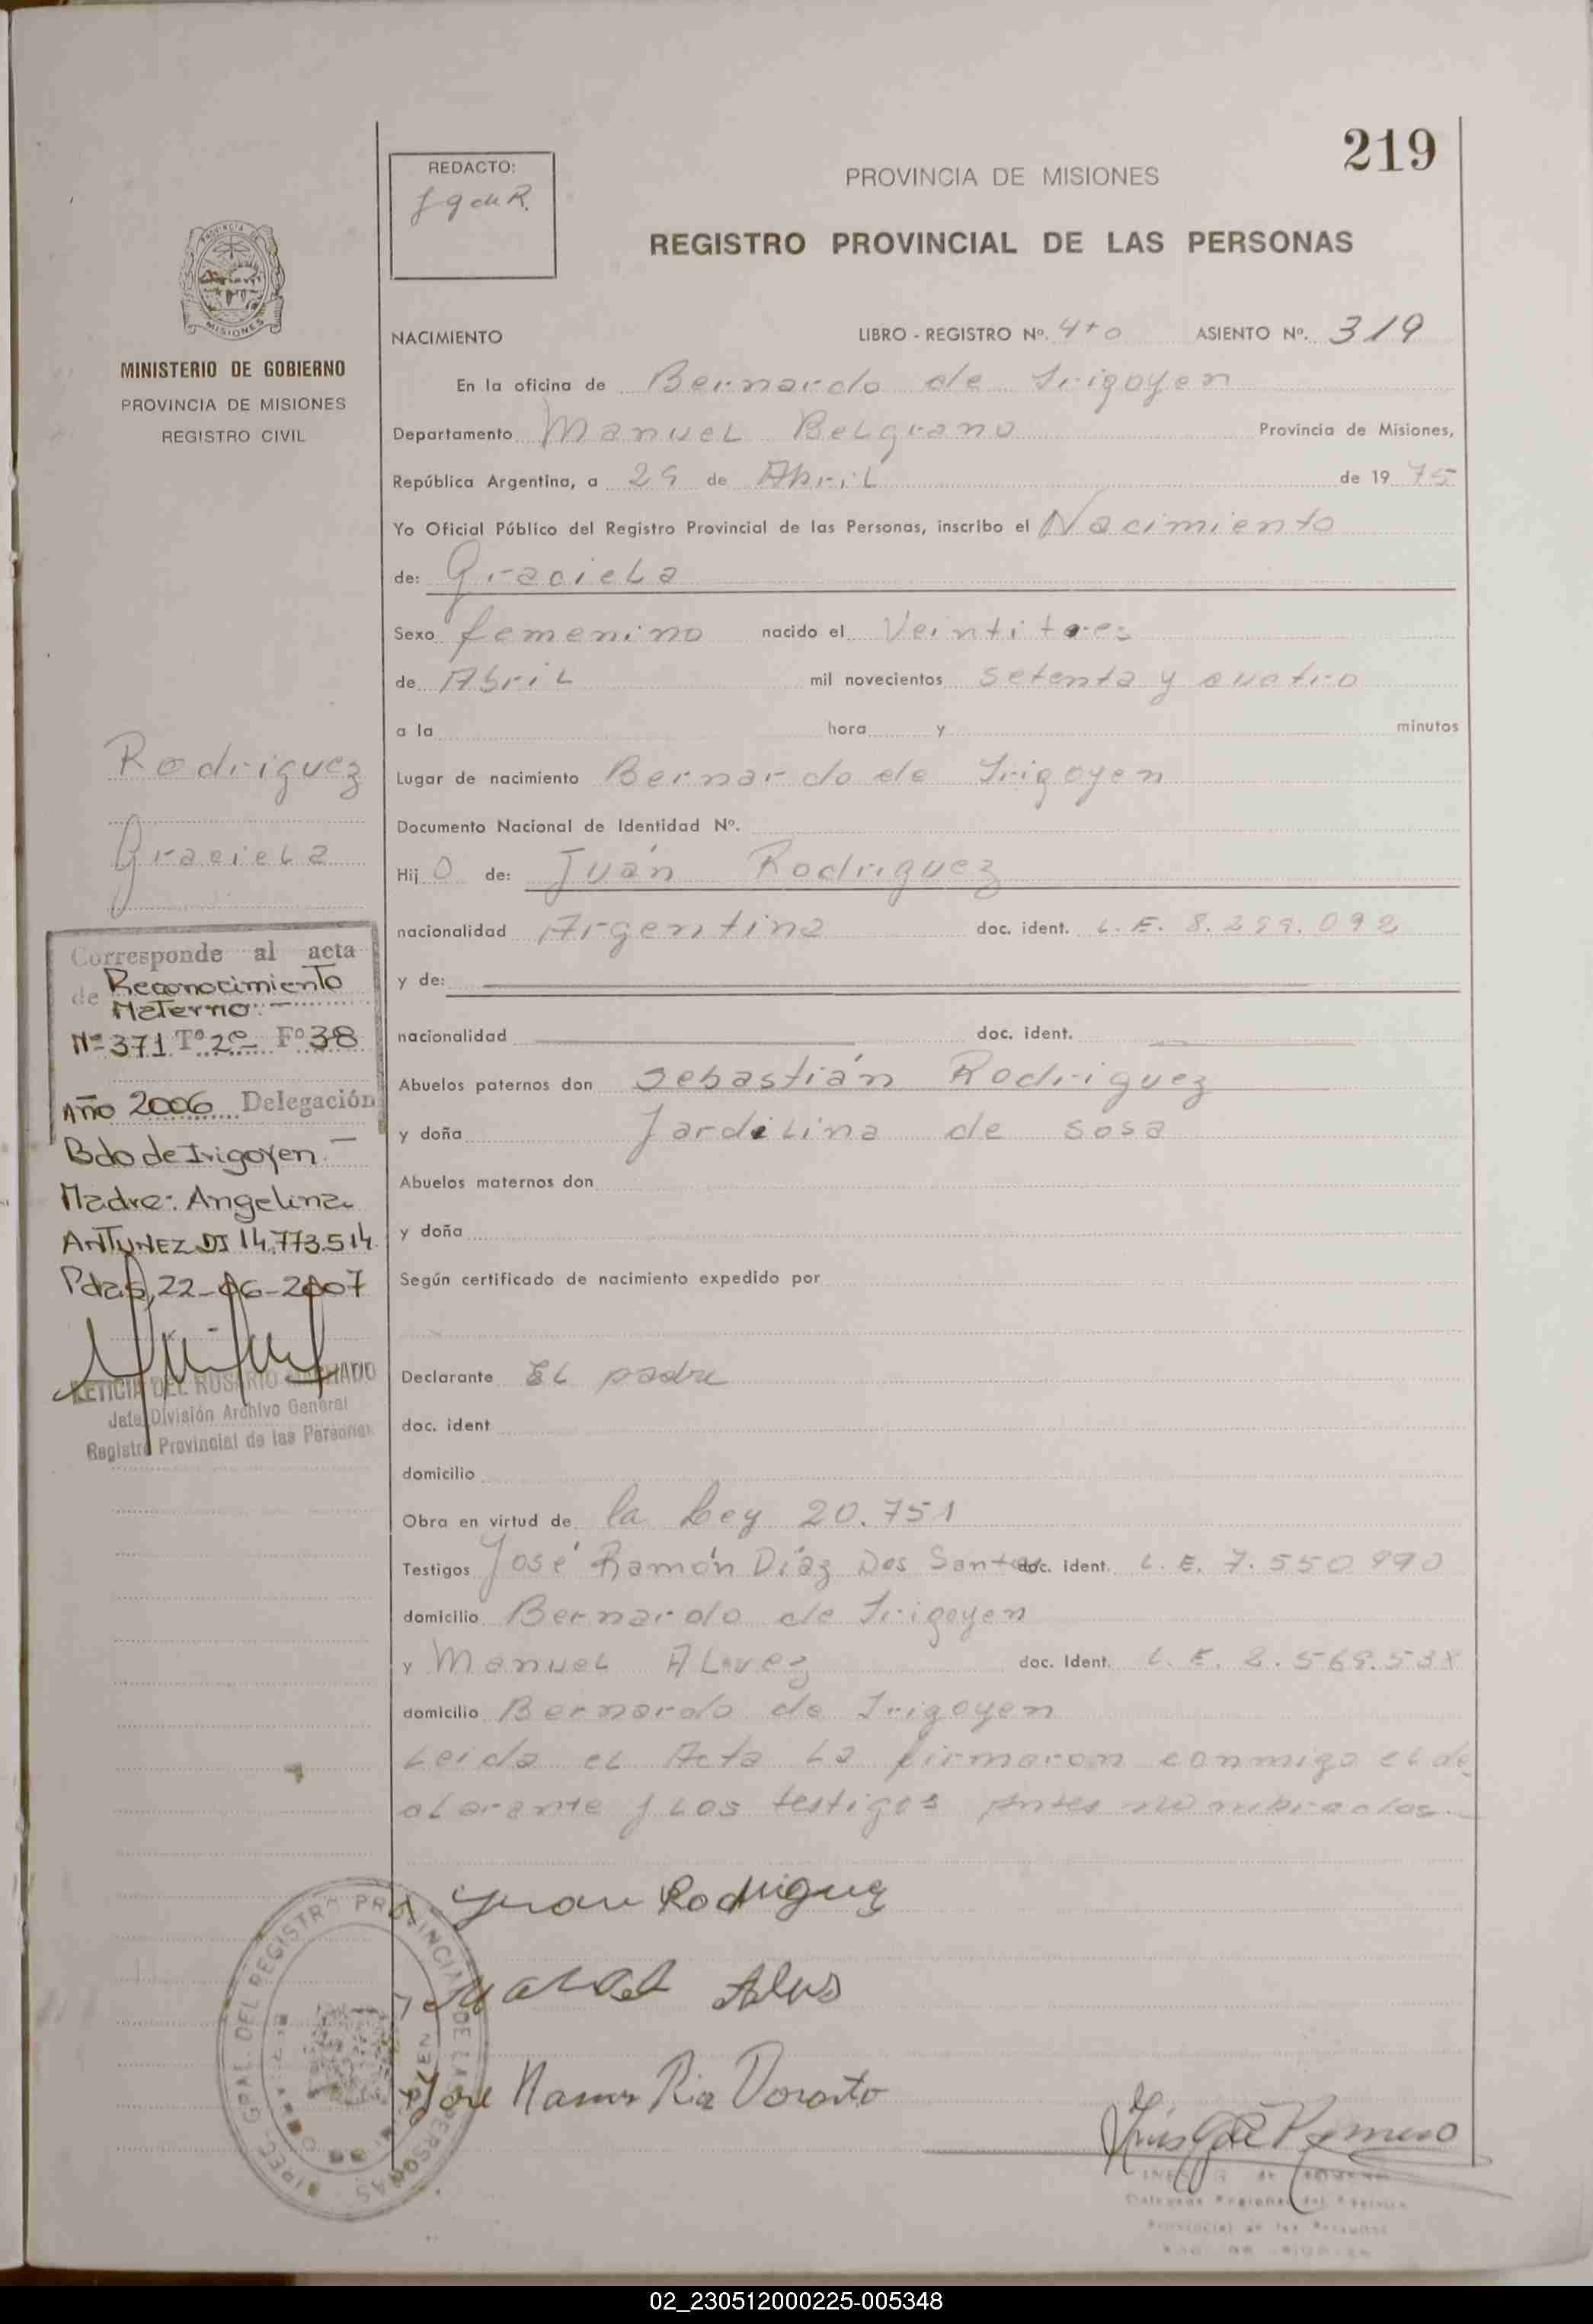 219
REDACTO:
PROVINCIA DE MISIONES
REGISTRO PROVINCIAL DE LAS PERSONAS
MINISTERIO DE GOBIERNO
PROVINCIA DE MISIONES
REGISTRO CIVIL
NACIMIENTO LIBRO - REGISTRO Nº. 4to ASIENTO Nº. 319
En la oficina de Bernardo de Irigoyen
Departamento Manuel Belgrano Provincia de Misiones,
República Argentina, a 29 de Abril de 1975
Yo Oficial Público del Registro Provincial de las Personas, inscribo el Nacimiento
de: Graciela
Sexo femenino nacido el Veintitres
de Abril mil novecientos setenta y cuatro
a la hora y minutos
Lugar de nacimiento Bernardo de Irigoyen
Documento Nacional de Identidad Nº.
Hij o de: Juan Rodriguez
nacionalidad Argentina doc. ident. L.E. 8.299.092
y de:
nacionalidad doc. ident.
Abuelos paternos don Sebastián Rodriguez
y doña Jardilina de sosa
Abuelos maternos don
y doña
Según certificado de nacimiento expedido por
Declarante El padre
doc. ident
domicilio
Obra en virtud de la Ley 20.751
Testigos José Ramón Díaz Dos Santos doc. ident. L.E. 7.550.990
domicilio Bernardo de Irigoyen
y Manuel Alvez doc. Ident. L.E. 2.569.538
domicilio Bernardo de Irigoyen
Leida el Acta la firmaron conmigo el de
clarante y los testigos antes nombrados.
Rodriguez
Graciela
Corresponde al acta
de Reconocimiento
Materno.-
Nº 371 Tº 2º Fº 38
Año 2006 Delegación
Bdo de Irigoyen -
Madre: Angelina
ANTUNEZ DI 14.773.514
Pdas, 22-06-2007
LETICIA DEL ROSARIO MACHADO
Jefa División Archivo General
Registro Provincial de las Personas
Juan Rodriguez
DIREC. GRAL. DEL REGISTRO PROVINCIAL DE LAS PERSONAS
02_230512000225-005348